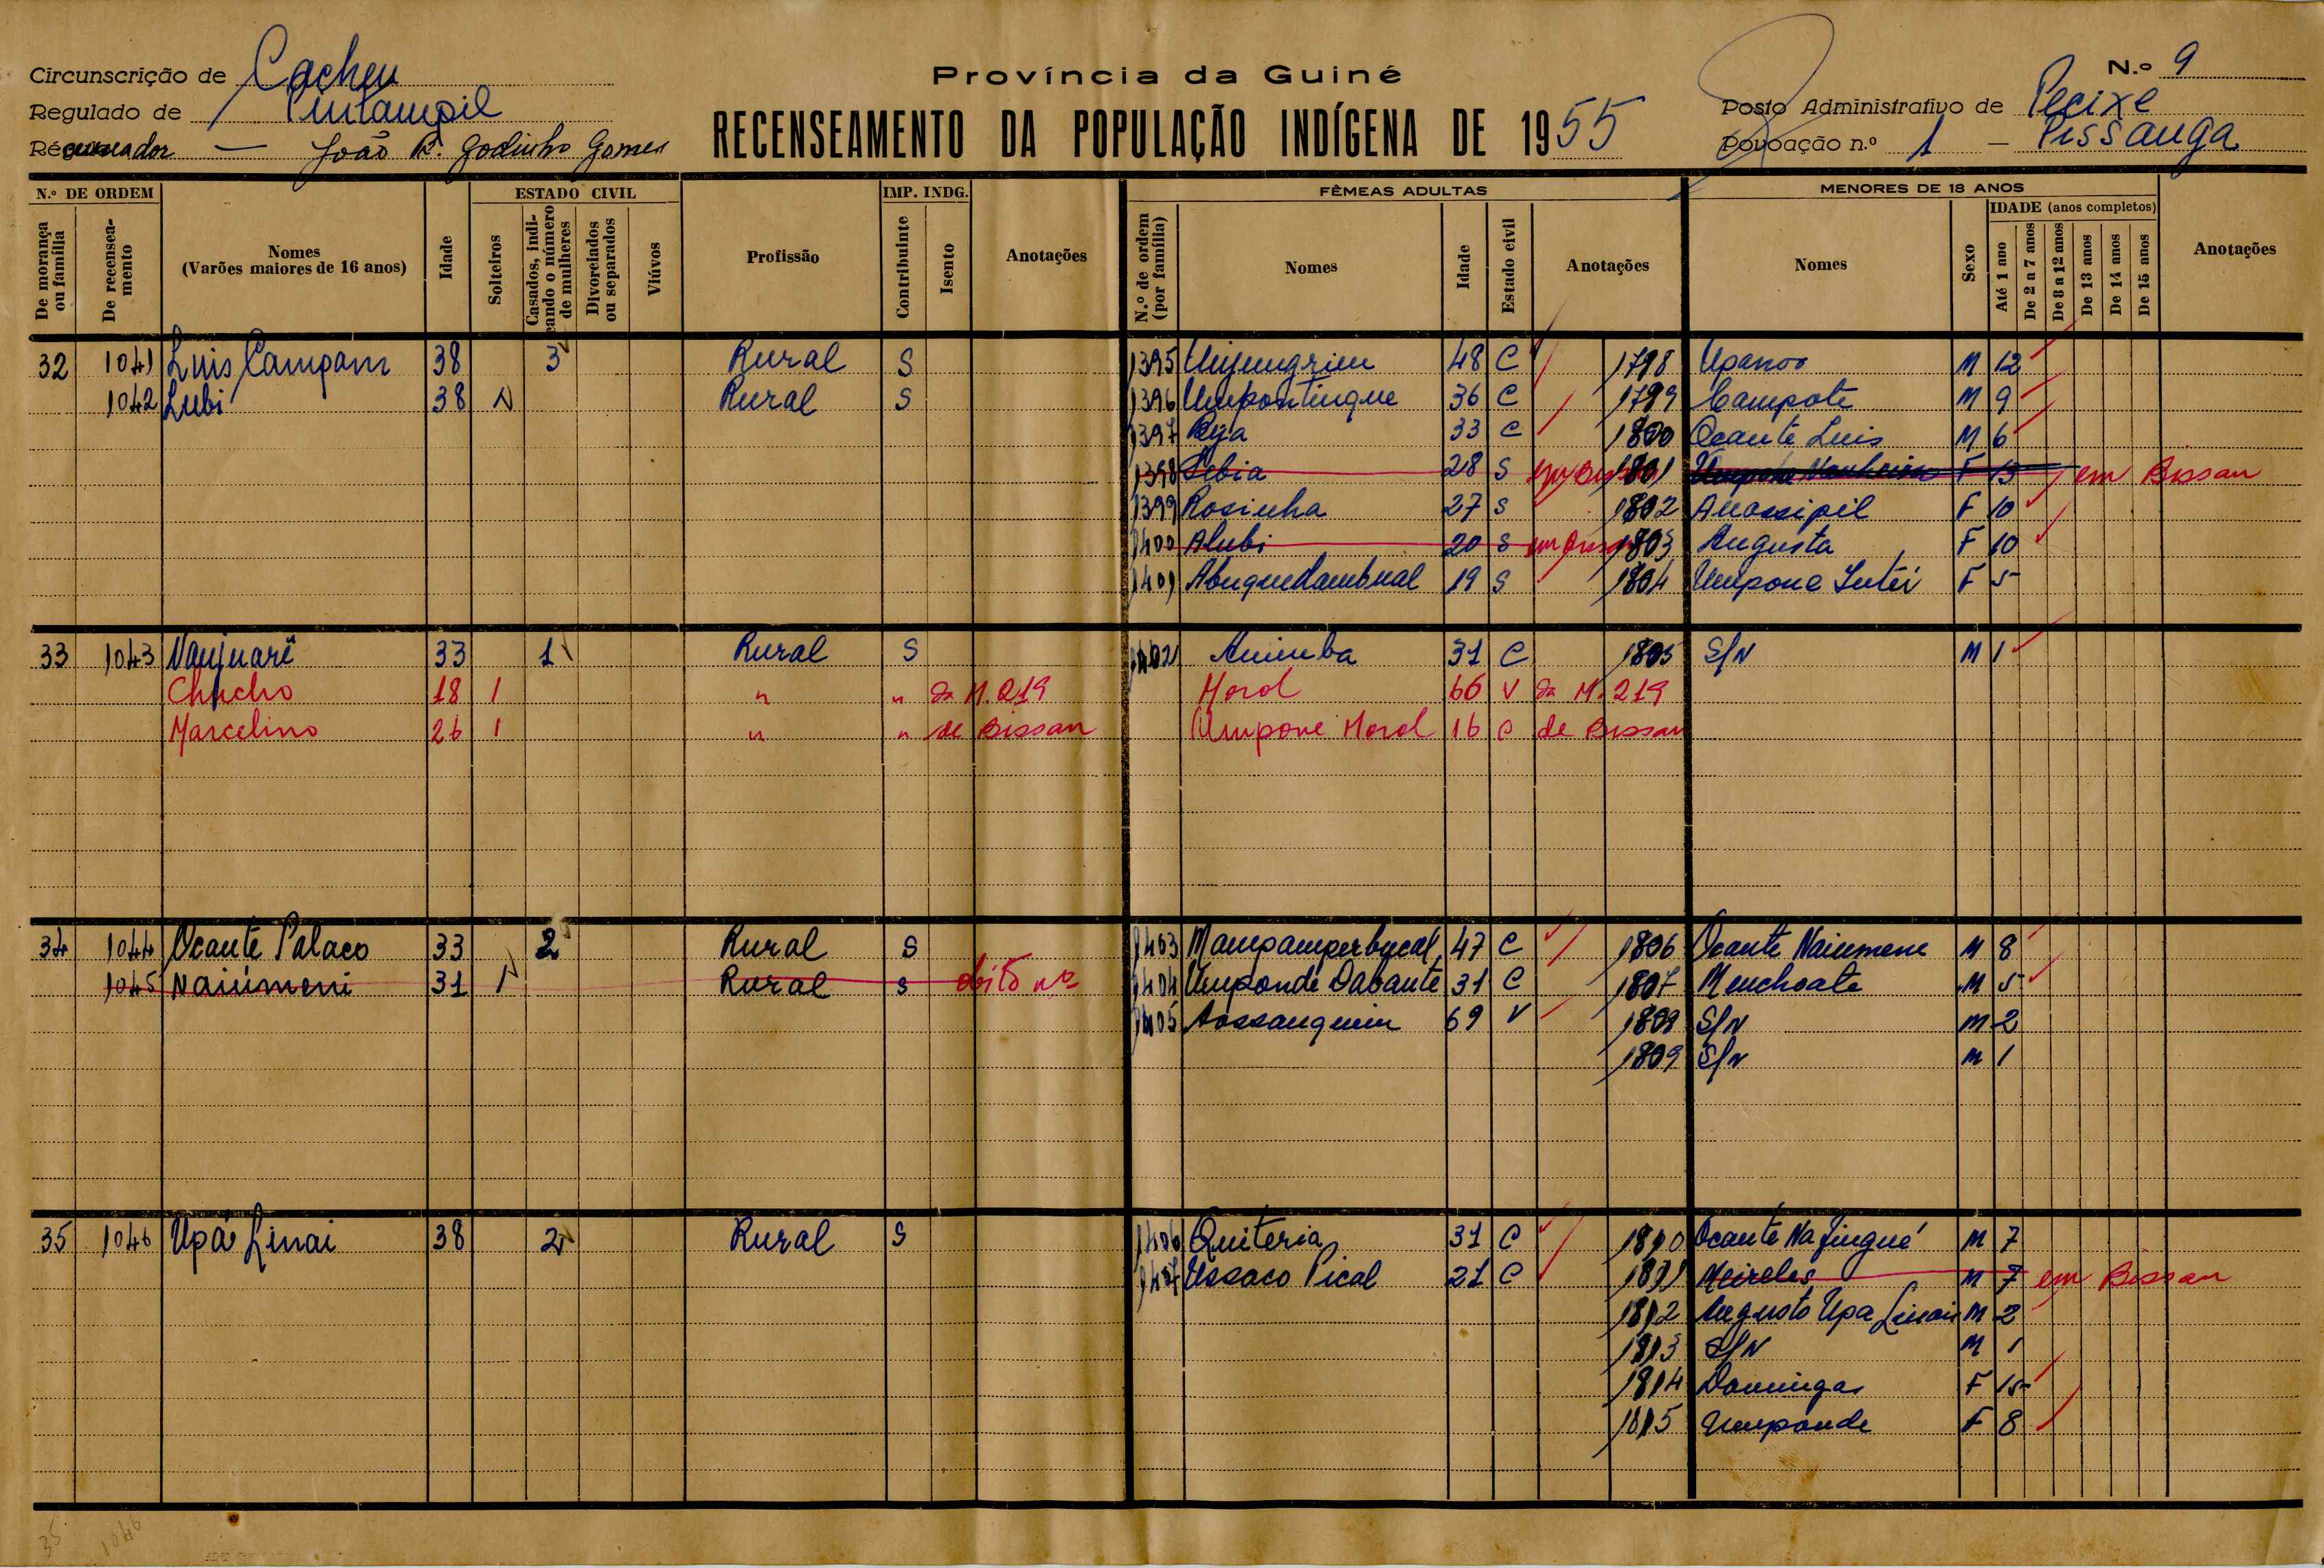 Circunscrição de Cacheu
Província da Guiné
N.º 9
Regulado de Pintampil
RECENSEAMENTO DA POPULAÇÃO INDÍGENA DE 1955
Posto Administrativo de Pecixe
Recenseador — João R. Godinho Gomes
Povoação n.º 1 — Pissanga
N.º DE ORDEM
De morança ou família
De recenseamento
Nomes
(Varões maiores de 16 anos)
Idade
ESTADO CIVIL
Solteiros
Casados, indicando o número de mulheres
Divorciados ou separados
Viúvos
Profissão
IMP. INDG.
Contribuinte
Isento
Anotações
FÊMEAS ADULTAS
N.º de ordem (por família)
Nomes
Idade
Estado civil
Anotações
MENORES DE 18 ANOS
Nomes
Sexo
IDADE (anos completos)
Até 1 ano
De 2 a 7 anos
De 8 a 12 anos
De 13 anos
De 14 anos
De 15 anos
Anotações
32 1041 Luis Campam 38 3 Rural S 1395 48 C 1798 Upanoo M 12
1042 Lubi 38 Rural S 1396 Umpontingue 36 C 1799 Campote M 9
1397 33 C 1800 Ocante Luis M 6
1398 Sebia 28 S 1801 F 13 em Bissau
1399 Rosinha 27 S 1802 Anossipil F 10
1400 Alubi 20 S 1803 Augusta F 10
1401 19 S 1804 Umpone Intéi F 5
33 1043 Naujuarê 33 1 Rural S 1402 Animba 31 C 1805 S/N M 1
Chucho 18 1 " " da M. 219 Horol 66 V da M. 219
Marcelino 26 1 " " de Bissau Umpone Horol 16 C de Bissau
34 1044 Ocante Palaco 33 2 Rural S 1403 47 C 1806 Ocante Naiumene M 8
1045 Naiúmeni 31 Rural S 1404 Umponde Dabante 31 C 1807 Menchoate M 5
1405 Aossanguim 69 V 1808 S/N M 2
1809 S/N M 1
35 1046 Upá Linai 38 2 Rural S 1406 Quiteria 31 C 1810 Ocante Na Jingué M 7
1407 Ussaco Pical 21 C 1811 Meireles M 7 em Bissau
1812 Augusto Upa Linai M 2
1813 S/N M 1
1814 Domingas F 15
1815 Umponde F 8
35 1046